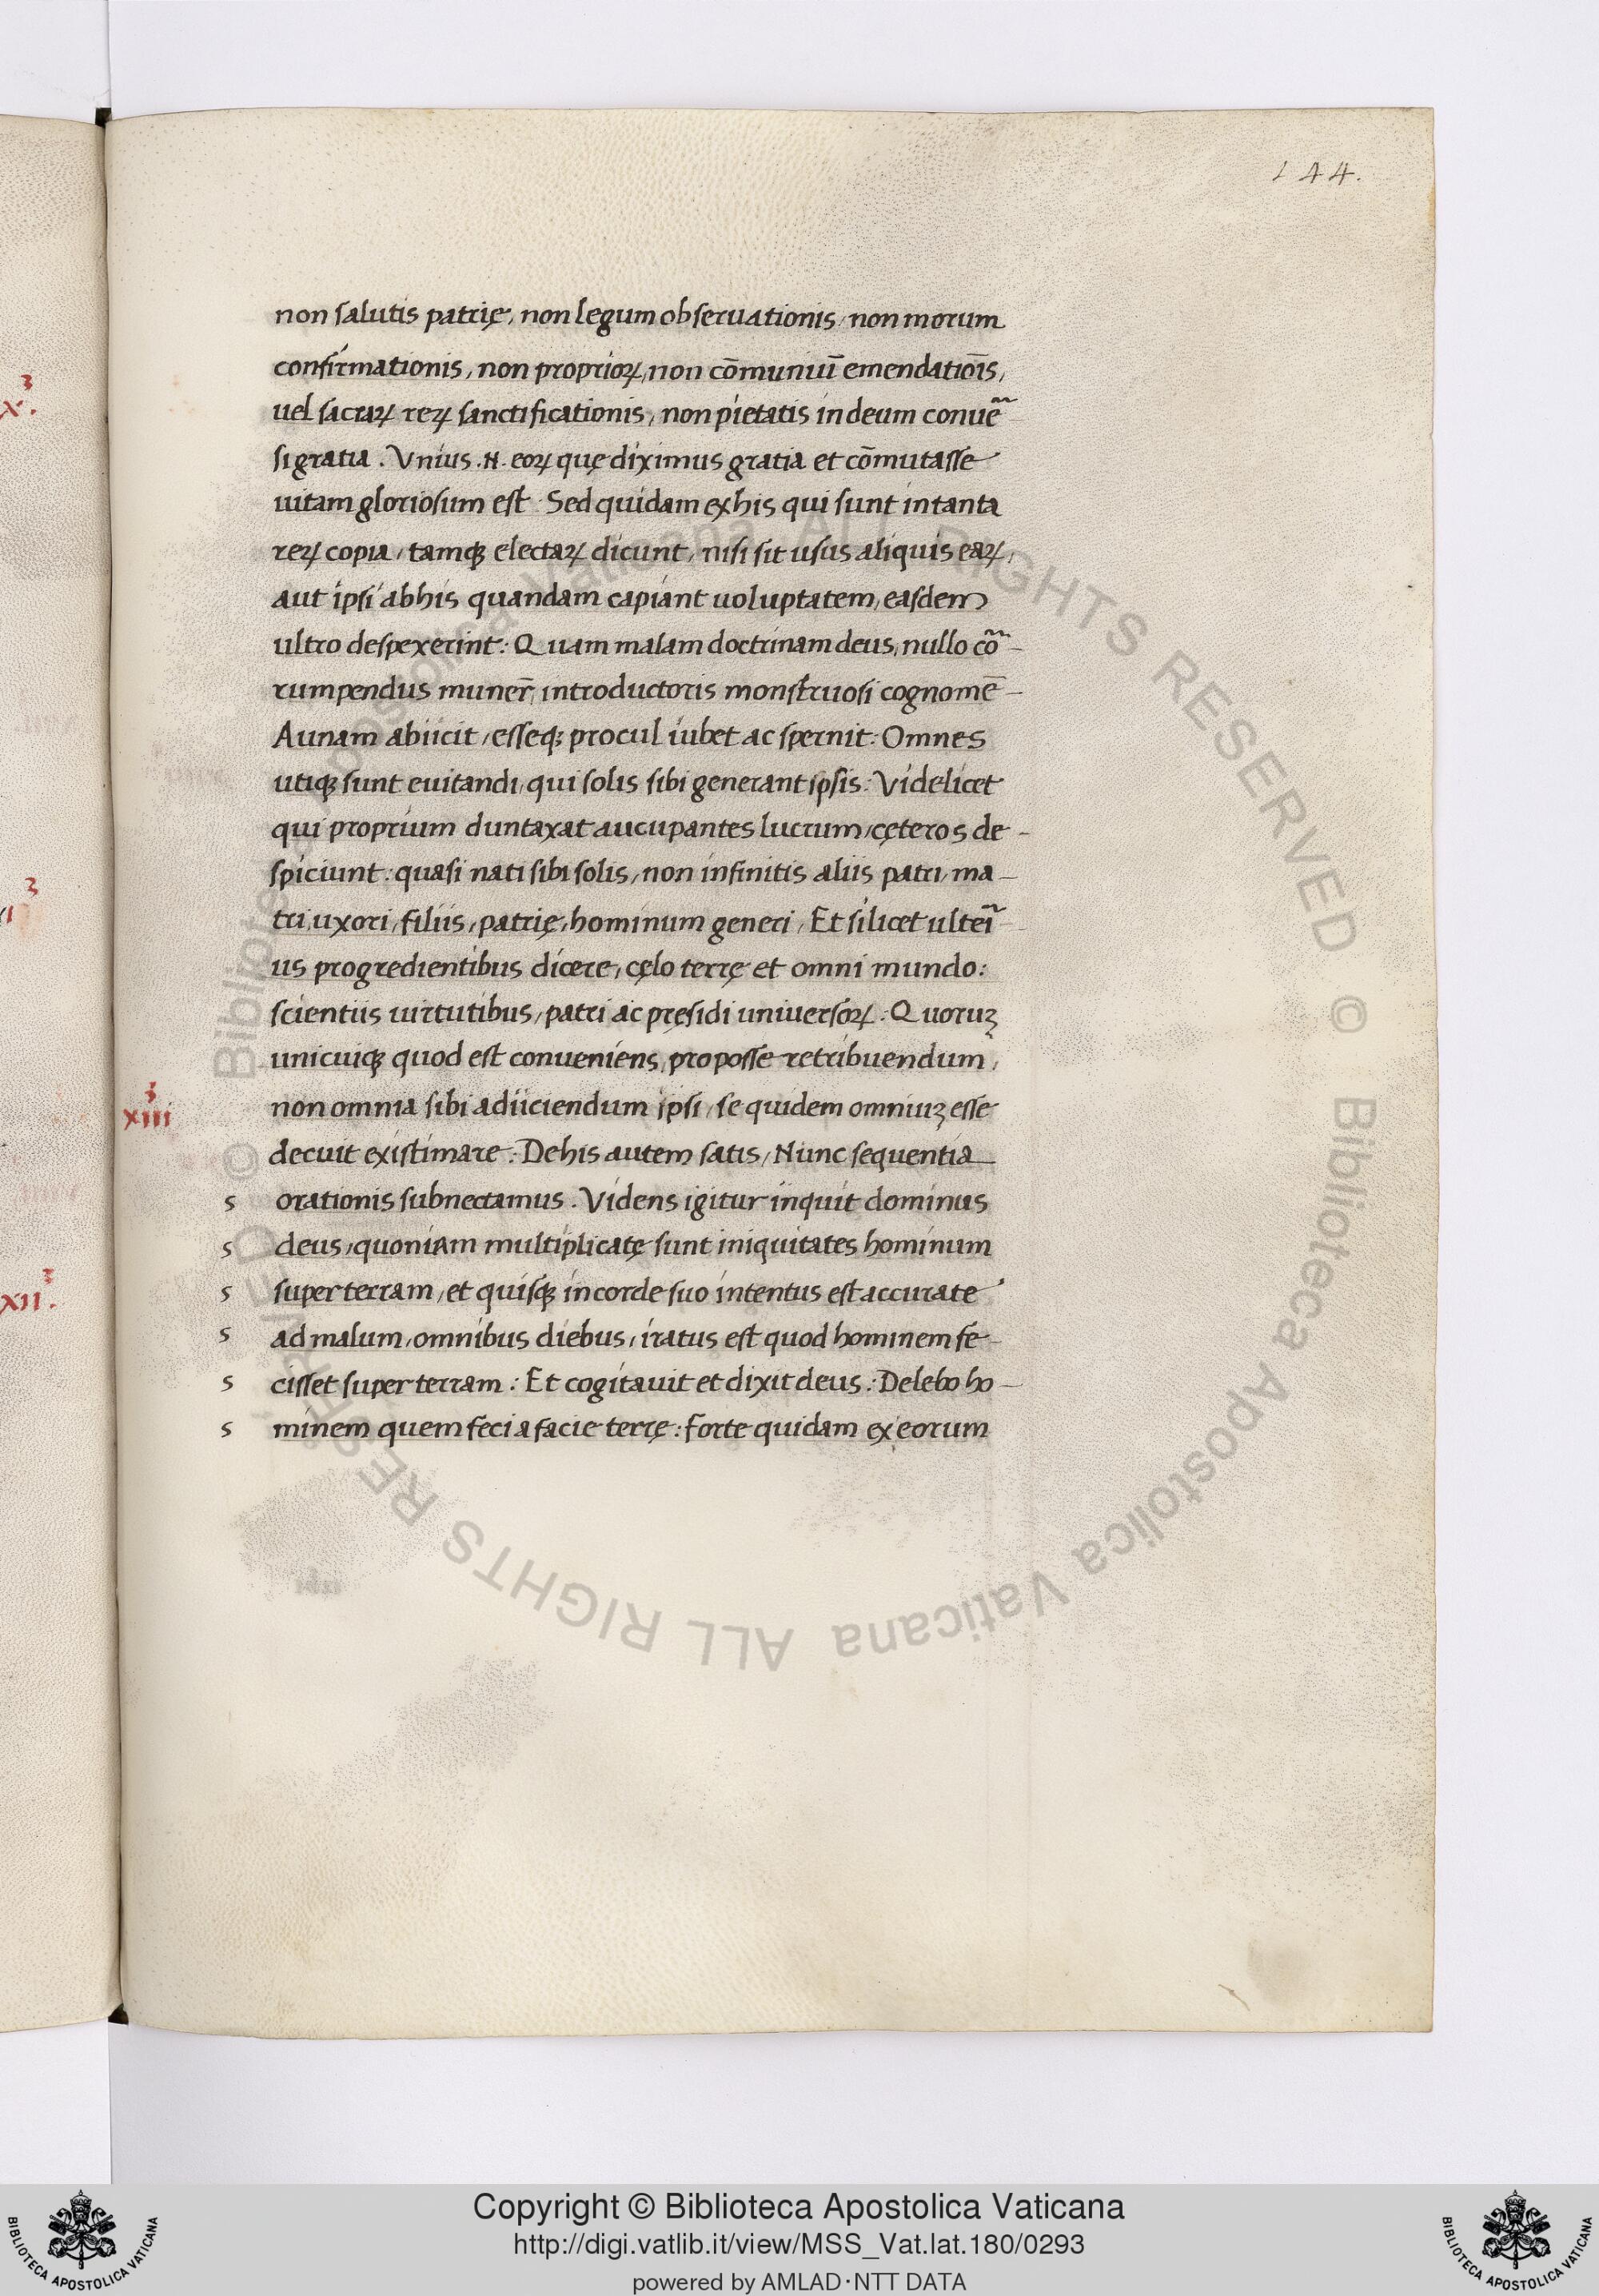 144.
non salutis patrię, non legum obseruationis, non morum
confirmationis, non proprioꝝ, non cōmuniū emendatiōis,
uel sacraꝝ reꝝ sanctificationis, non pietatis in deum conuē-
si gratia. Vnius .N. eoꝝ quę diximus gratia et cōmutasse
uitam gloriosum est. Sed quidam ex his qui sunt in tanta
reꝝ copia, tamqꝫ electaꝝ dicunt, nisi sit usus aliquis eaꝝ,
aut ipsi ab his quandam capiant uoluptatem, easdem
ultro despexerint: Quam malam doctrinam deus, nullo cō-
rumpendus muner̄, introductoris monstruosi cognomē-
Aunam abiicit, esseqꝫ procul iubet ac spernit: Omnes
utiqꝫ sunt euitandi, qui solis sibi generant ipsis: Videlicet
qui proprium duntaxat aucupantes lucrum, cęteros de-
spiciunt: quasi nati sibi solis, non infinitis aliis patri, ma-
tri, uxori, filiis, patrię, hominum generi, Et si licet ulteı̃-
us progredientibus dicere, cęlo terrę et omni mundo:
scientiis uirtutibus, patri ac pręsidi uniuersoꝝ: Quoruꝫ
unicuiqꝫ quod est conueniens, pro posse retribuendum,
ʒ
xiii
non omnia sibi adiiciendum ipsi, se quidem omniuꝫ esse
decuit existimare: De his autem satis, Nunc sequentia
s orationis subnectamus. Videns igitur inquit dominus
s deus, quoniam multiplicatę sunt iniquitates hominum
s super terram, et quisqꝫ in corde suo intentus est accurate
s ad malum, omnibus diebus, iratus est quod hominem fe-
s cisset super terram: Et cogitauit et dixit deus: Delebo ho-
s minem quem feci a facie terrę: forte quidam ex eorum
ʒ
x.
ʒ
xi
ʒ
xii.
© Biblioteca Apostolica Vaticana ALL RIGHTS RESERVED © Biblioteca Apostolica Vaticana ALL RIGHTS RESERVED
Copyright © Biblioteca Apostolica Vaticana
http://digi.vatlib.it/view/MSS_Vat.lat.180/0293
powered by AMLAD·NTT DATA
BIBLIOTECA APOSTOLICA VATICANA
BIBLIOTECA APOSTOLICA VATICANA